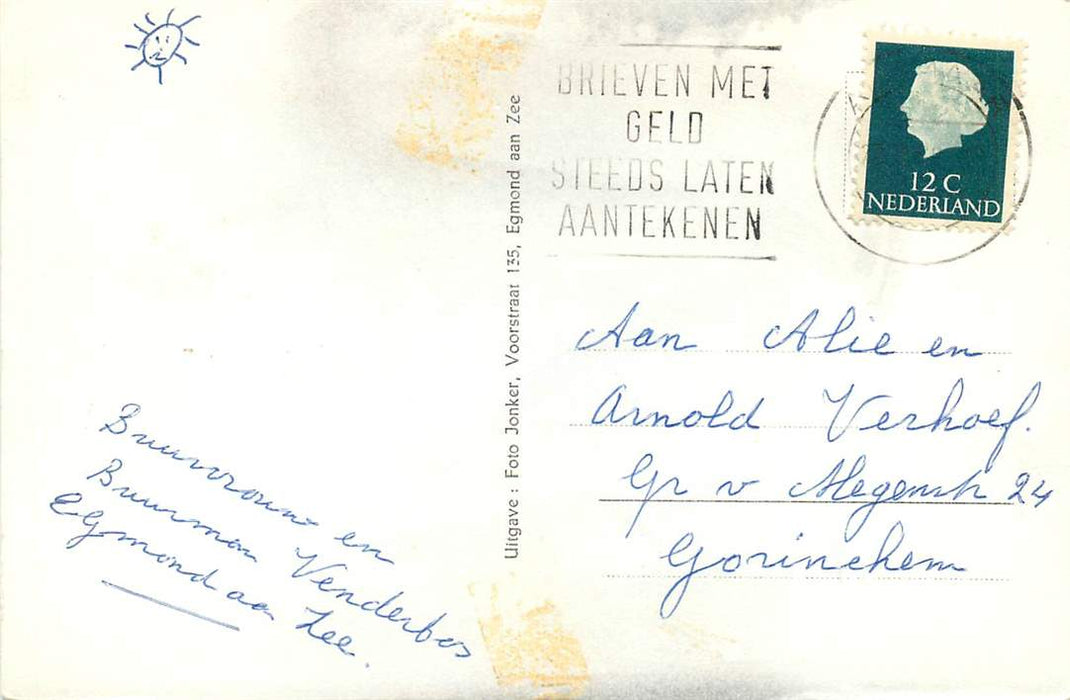 BRIEVEN MET
GELD
STEEDS LATEN
AANTEKENEN
12 C
NEDERLAND
Uitgave : Foto Jonker, Voorstraat 135, Egmond aan Zee
Aan Alie en
Arnold Verhoef.
Gr v Megenstr 24
Gorinchem
Buurvrouw en
Buurman Venderbos
Egmond aan Zee.